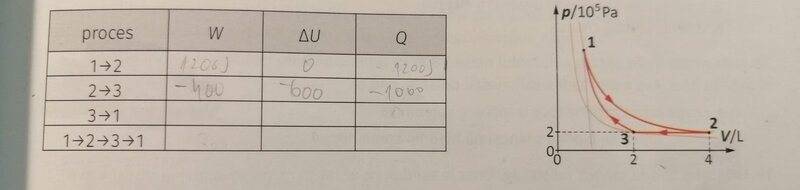 proces W ΔU Q
1→2 1200J 0 -1200J
2→3 -400 -600 -1000
3→1
1→2→3→1
p/10⁵Pa
1
2
2
3
V/L
0
0
2
4